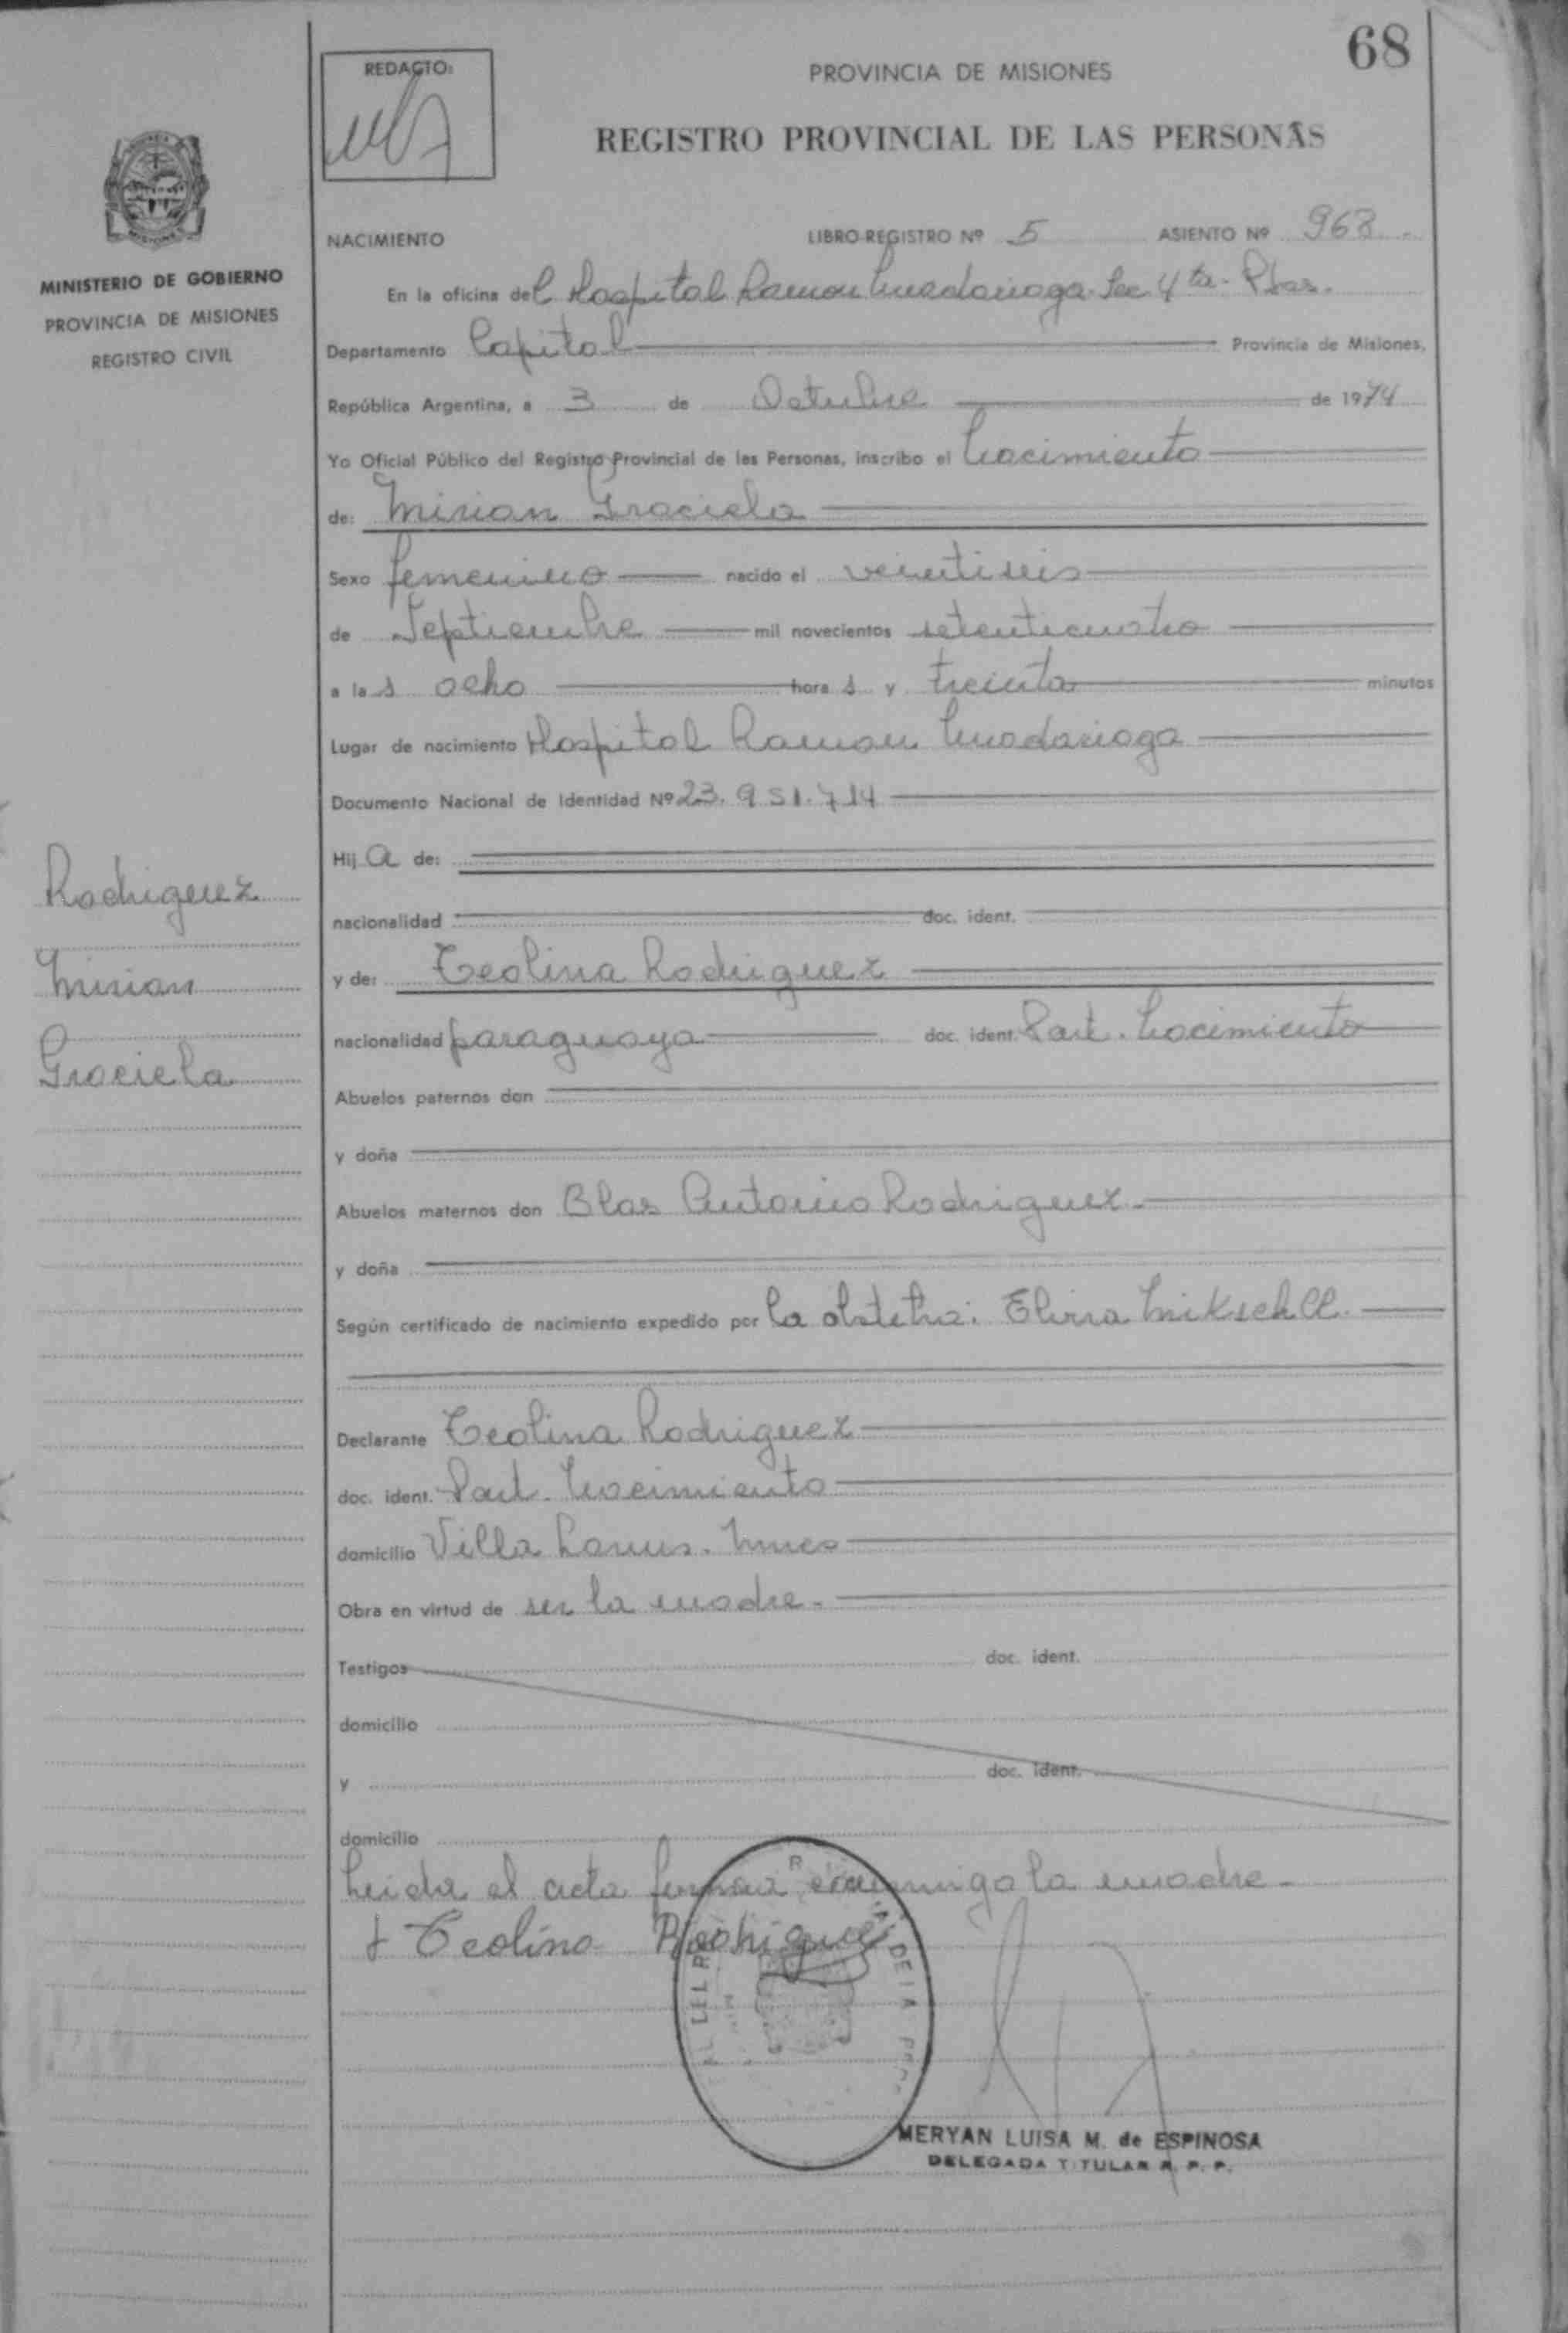 68
REDACTO:
PROVINCIA DE MISIONES
REGISTRO PROVINCIAL DE LAS PERSONAS
MINISTERIO DE GOBIERNO
PROVINCIA DE MISIONES
REGISTRO CIVIL
NACIMIENTO LIBRO-REGISTRO Nº 5 ASIENTO Nº 968
En la oficina del Hospital Ramon Madariaga. Sec 4ta. Pdas.
Departamento Capital Provincia de Misiones,
República Argentina, a 3 de Octubre de 1974
Yo Oficial Público del Registro Provincial de las Personas, inscribo el Nacimiento
de: Mirian Graciela
Sexo femenino nacido el veintiseis
de Septiembre mil novecientos setenticuatro
a las ocho horas y treinta minutos
Lugar de nacimiento Hospital Ramon Madariaga
Documento Nacional de Identidad Nº 23.951.714
Hija de:
nacionalidad doc. ident.
y de: Teolina Rodriguez
nacionalidad paraguaya doc. ident. Part. Nacimiento
Abuelos paternos don
y doña
Abuelos maternos don Blas Antonio Rodriguez
y doña
Según certificado de nacimiento expedido por la obstetra: Elvira
Declarante Teolina Rodriguez
doc. ident. Part. Nacimiento
domicilio Villa Lanus. Mnes
Obra en virtud de ser la madre.
Testigos doc. ident.
domicilio
y doc. ident.
domicilio
Leida el acta firma conmigo la madre
Teolina Rodriguez
MERYAN LUISA M. de ESPINOSA
DELEGADA TITULAR R. P. P.
Rodriguez
Mirian
Graciela